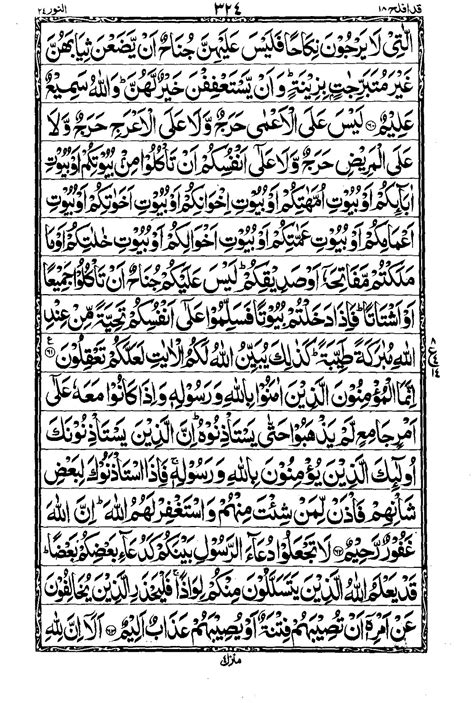 قد افلح ١٨ ٣٢٤ النور ٢٤
الّٰتِیْ لَا یَرْجُوْنَ نِكَاحًا فَلَیْسَ عَلَیْهِنَّ جُنَاحٌ اَنْ یَّضَعْنَ ثِیَابَهُنَّ
غَیْرَ مُتَبَرِّجٰتٍۭ بِزِیْنَةٍ ؕ وَ اَنْ یَّسْتَعْفِفْنَ خَیْرٌ لَّهُنَّ ؕ وَاللّٰهُ سَمِیْعٌ
عَلِیْمٌ ﴿۶۰﴾ لَیْسَ عَلَی الْاَعْمٰی حَرَجٌ وَّ لَا عَلَی الْاَعْرَجِ حَرَجٌ وَّ لَا
عَلَی الْمَرِیْضِ حَرَجٌ وَّ لَا عَلٰۤی اَنْفُسِكُمْ اَنْ تَاْكُلُوْا مِنْۢ بُیُوْتِكُمْ اَوْ بُیُوْتِ
اٰبَآىِٕكُمْ اَوْ بُیُوْتِ اُمَّهٰتِكُمْ اَوْ بُیُوْتِ اِخْوَانِكُمْ اَوْ بُیُوْتِ اَخَوٰتِكُمْ اَوْ بُیُوْتِ
اَعْمَامِكُمْ اَوْ بُیُوْتِ عَمّٰتِكُمْ اَوْ بُیُوْتِ اَخْوَالِكُمْ اَوْ بُیُوْتِ خٰلٰتِكُمْ اَوْ مَا
مَلَكْتُمْ مَّفَاتِحَهٗۤ اَوْ صَدِیْقِكُمْ ؕ لَیْسَ عَلَیْكُمْ جُنَاحٌ اَنْ تَاْكُلُوْا جَمِیْعًا
اَوْ اَشْتَاتًا ؕ فَاِذَا دَخَلْتُمْ بُیُوْتًا فَسَلِّمُوْا عَلٰۤی اَنْفُسِكُمْ تَحِیَّةً مِّنْ عِنْدِ
اللّٰهِ مُبٰرَكَةً طَیِّبَةً ؕ كَذٰلِكَ یُبَیِّنُ اللّٰهُ لَكُمُ الْاٰیٰتِ لَعَلَّكُمْ تَعْقِلُوْنَ ﴿۶۱﴾
ع
٨
٤
١٤
اِنَّمَا الْمُؤْمِنُوْنَ الَّذِیْنَ اٰمَنُوْا بِاللّٰهِ وَ رَسُوْلِهٖ وَ اِذَا كَانُوْا مَعَهٗ عَلٰۤی
اَمْرٍ جَامِعٍ لَّمْ یَذْهَبُوْا حَتّٰی یَسْتَاْذِنُوْهُ ؕ اِنَّ الَّذِیْنَ یَسْتَاْذِنُوْنَكَ
اُولٰٓىِٕكَ الَّذِیْنَ یُؤْمِنُوْنَ بِاللّٰهِ وَ رَسُوْلِهٖ ۚ فَاِذَا اسْتَاْذَنُوْكَ لِبَعْضِ
شَاْنِهِمْ فَاْذَنْ لِّمَنْ شِئْتَ مِنْهُمْ وَ اسْتَغْفِرْ لَهُمُ اللّٰهَ ؕ اِنَّ اللّٰهَ
غَفُوْرٌ رَّحِیْمٌ ﴿۶۲﴾ لَا تَجْعَلُوْا دُعَآءَ الرَّسُوْلِ بَیْنَكُمْ كَدُعَآءِ بَعْضِكُمْ بَعْضًا ؕ
قَدْ یَعْلَمُ اللّٰهُ الَّذِیْنَ یَتَسَلَّلُوْنَ مِنْكُمْ لِوَاذًا ۚ فَلْیَحْذَرِ الَّذِیْنَ یُخَالِفُوْنَ
عَنْ اَمْرِهٖۤ اَنْ تُصِیْبَهُمْ فِتْنَةٌ اَوْ یُصِیْبَهُمْ عَذَابٌ اَلِیْمٌ ﴿۶۳﴾ اَلَاۤ اِنَّ لِلّٰهِ